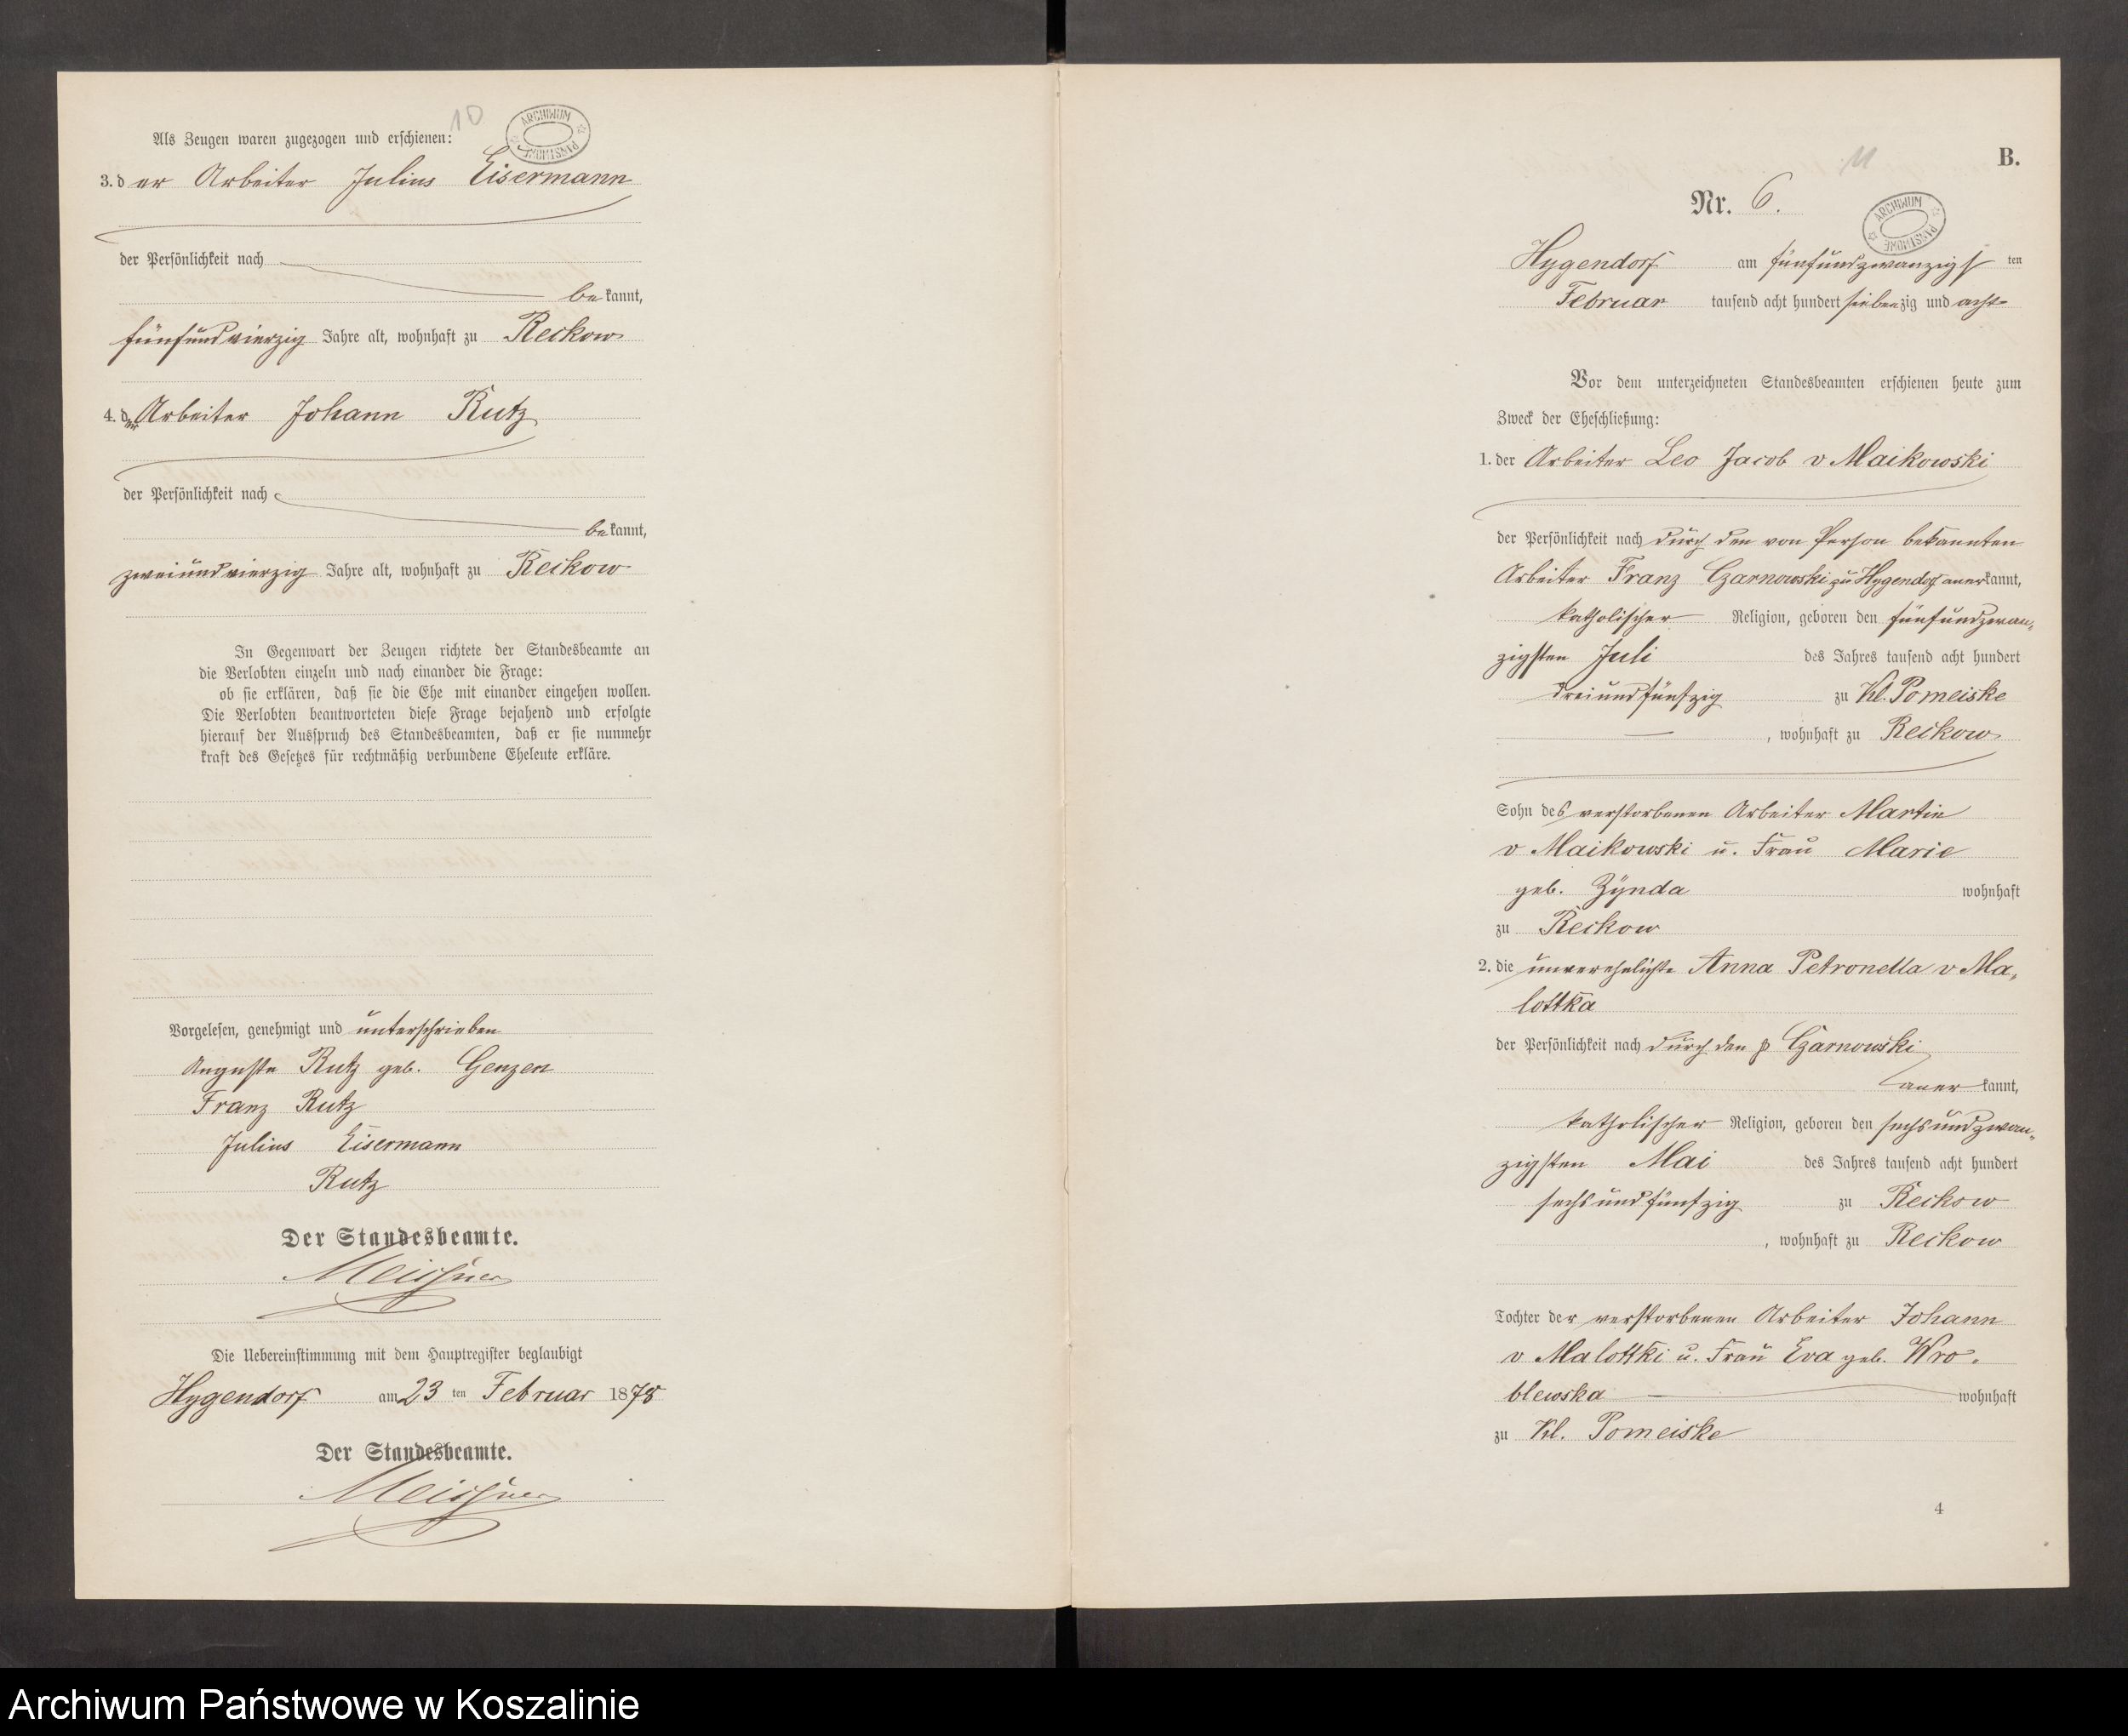 10
ARCHIWUM PAŃSTWOWE
Als Zeugen waren zugezogen und erschienen:
3. der Arbeiter Julius Eisermann
der Persönlichkeit nach
bekannt,
fünfundvierzig Jahre alt, wohnhaft zu Reckow
4. der Arbeiter Johann Rutz
der Persönlichkeit nach
bekannt,
zweiundvierzig Jahre alt, wohnhaft zu Reckow
In Gegenwart der Zeugen richtete der Standesbeamte an
die Verlobten einzeln und nach einander die Frage:
ob sie erklären, daß sie die Ehe mit einander eingehen wollen.
Die Verlobten beantworteten diese Frage bejahend und erfolgte
hierauf der Ausspruch des Standesbeamten, daß er sie nunmehr
kraft des Gesetzes für rechtmäßig verbundene Eheleute erkläre.
Vorgelesen, genehmigt und unterschrieben
Auguste Rutz geb. Genzen
Franz Rutz
Julius Eisermann
Rutz
Der Standesbeamte.
Meissner
Die Uebereinstimmung mit dem Hauptregister beglaubigt
Hygendorf am 23 ten Februar 1878
Der Standesbeamte.
Meissner
11
B.
Nr. 6.
ARCHIWUM PAŃSTWOWE
Hygendorf am fünfundzwanzigsten
Februar tausend acht hundert siebenzig und acht
Vor dem unterzeichneten Standesbeamten erschienen heute zum
Zweck der Eheschließung:
1. der Arbeiter Leo Jacob v Maikowski
der Persönlichkeit nach durch den von Person bekannten
Arbeiter Franz Czarnowski zu Hygendorf anerkannt,
katholischer Religion, geboren den fünfundzwan-
zigsten Juli des Jahres tausend acht hundert
dreiundfünfzig zu Kl. Pomeiske
, wohnhaft zu Reckow
Sohn des verstorbenen Arbeiter Martin
v Maikowski u. Frau Marie
geb. Zynda wohnhaft
zu Reckow
2. die unverehelichte Anna Petronella v Ma-
lottka
der Persönlichkeit nach durch den p Czarnowski
anerkannt,
katholischer Religion, geboren den sechsundzwan-
zigsten Mai des Jahres tausend acht hundert
sechsundfünfzig zu Reckow
, wohnhaft zu Reckow
Tochter der verstorbenen Arbeiter Johann
v Malottki u. Frau Eva geb. Wro-
blewska wohnhaft
zu Kl. Pomeiske
4
Archiwum Państwowe w Koszalinie